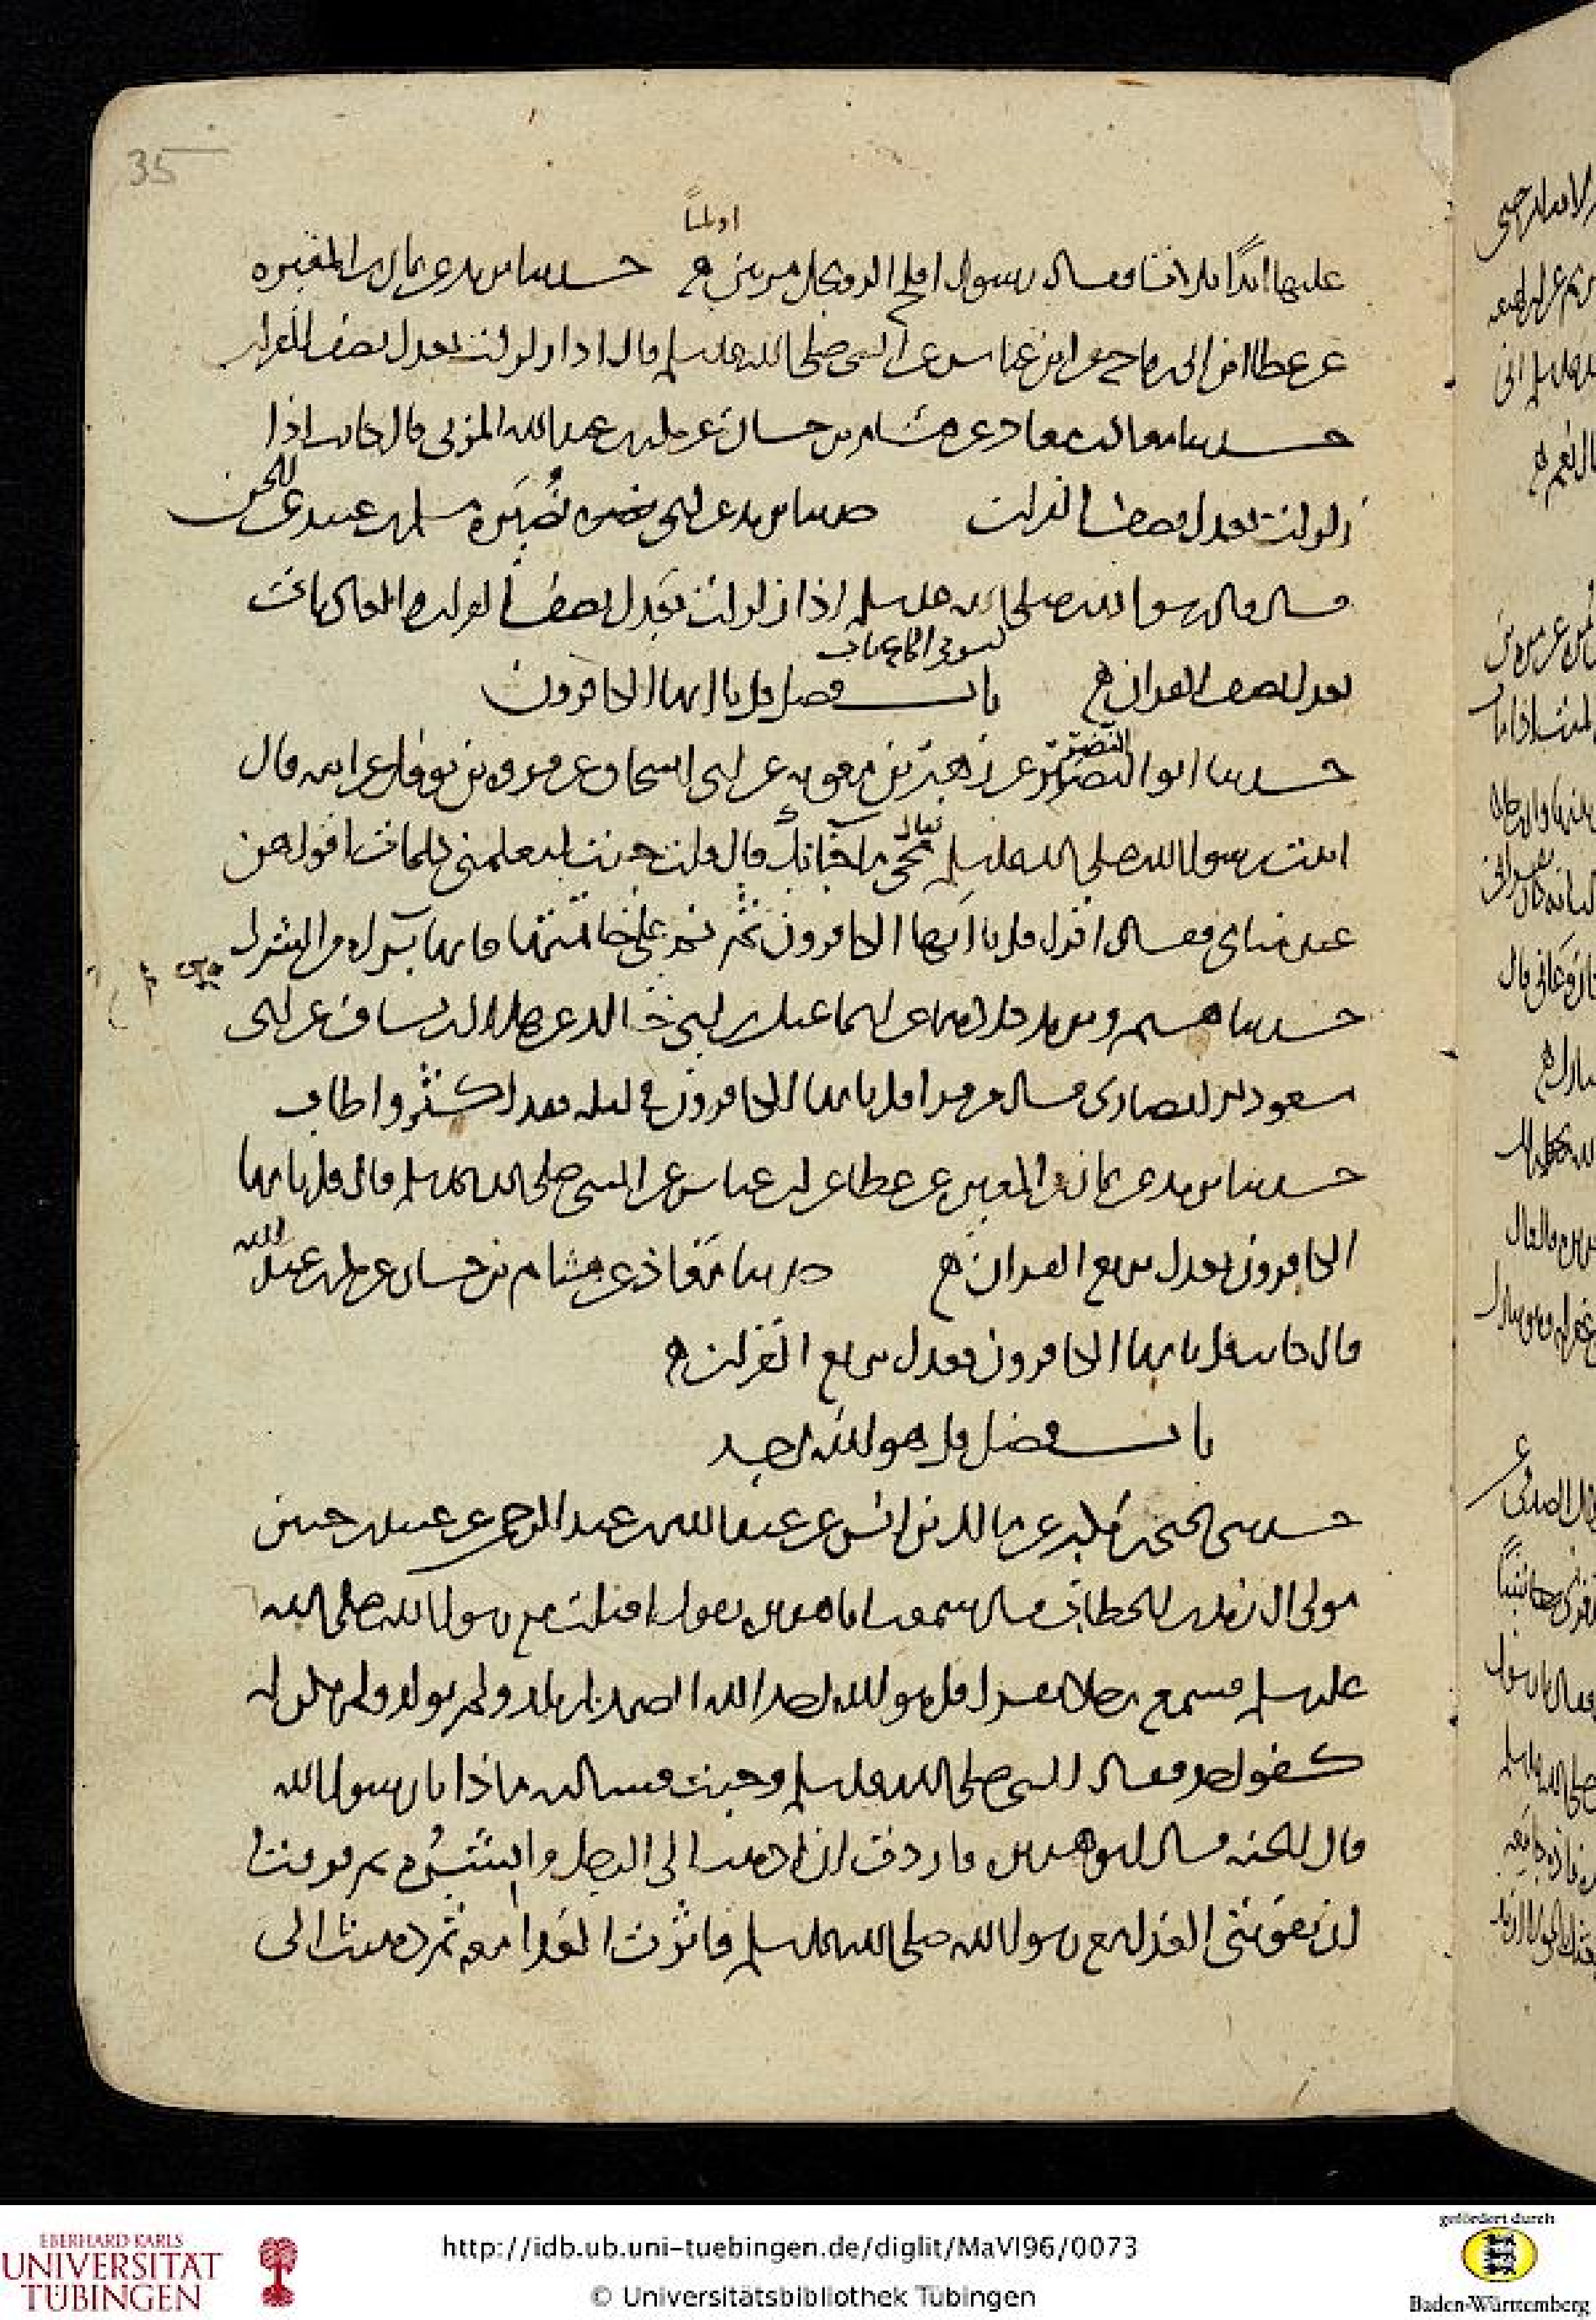 35
او ثلثا
عليها ابدًا ثلاثا فقال رسول افلح الرويجل مرتين ه حدثنا يزيد عن يمان بن المغيره
عن عطا ابن ابي رباح عن ابن عباس عن النبي صلى الله عليه وسلم قال اذا زلزلت تعدل نصف القران
حدثنا معاذ عن هشام بن حسان عن بكر بن عبد الله المزني قال كانت اذا
زلزلت تعدل نصف القران حدثنا يزيد عن ابي نُصَيرَه مسلم بن عبيد عن الحسن
قال قال رسول الله صلى الله عليه وسلم اذا زلزلت تعدل نصف القران والعاديات
تعدل نصف القران ه باب فضل قل يا ايها الكافرون
حدثنا ابو النضر عن زهير بن معويه عن ابي اسحاق عن فروه بن نوفل عن ابيه قال
اتيت رسول الله صلى الله عليه وسلم فقال مجئ ما جابك قال قلت جئت لتعلمني كلمات اقولهن
عند منامي فقال اقرا قل يا ايها الكافرون ثم نم على خاتمتها فانها براه من الشرك
حدثنا هشيم ويزيد كلاهما عن اسماعيل بن ابي خالد عن هلال بن يساف عن ابي
مسعود الانصاري قال من قرا قل يا ايها الكافرون في ليله فقد اكثر واطاب
حدثنا يزيد عن يمان بن المغيره عن عطا عن ابن عباس عن النبي صلى الله عليه وسلم قال قل يا ايها
الكافرون تعدل بربع القران ه حدثنا معاذ عن هشام بن حسان عن بكر بن عبد الله
قال كانت قل يا ايها الكافرون تعدل بربع القران ه
باب فضل قل هو الله احد
حدثني يحيى بن بكير عن مالك بن انس عن عبد الله بن عبد الرحمن عن عبيد بن حنين
مولى ال زيد بن الخطاب قال سمعت ابا هريره يقول اقبلت مع رسول الله صلى الله
عليه وسلم فسمع رجلا يقرا قل هو الله احد الله الصمد لم يلد ولم يولد ولم يكن له
كفوا احد فقال النبي صلى الله عليه وسلم وجبت فسالته ماذا يا رسول الله
قال الجنه قال ابو هريره فاردت ان اذهب الى الرجل وابشره ثم فرقت
ان يفوتني الغدا مع رسول الله صلى الله عليه وسلم فاثرت الغدا معه ثم ذهبت الى
EBERHARD KARLS
UNIVERSITÄT
TÜBINGEN
http://idb.ub.uni-tuebingen.de/diglit/MaVI96/0073
© Universitätsbibliothek Tübingen
gefördert durch
Baden-Württemberg